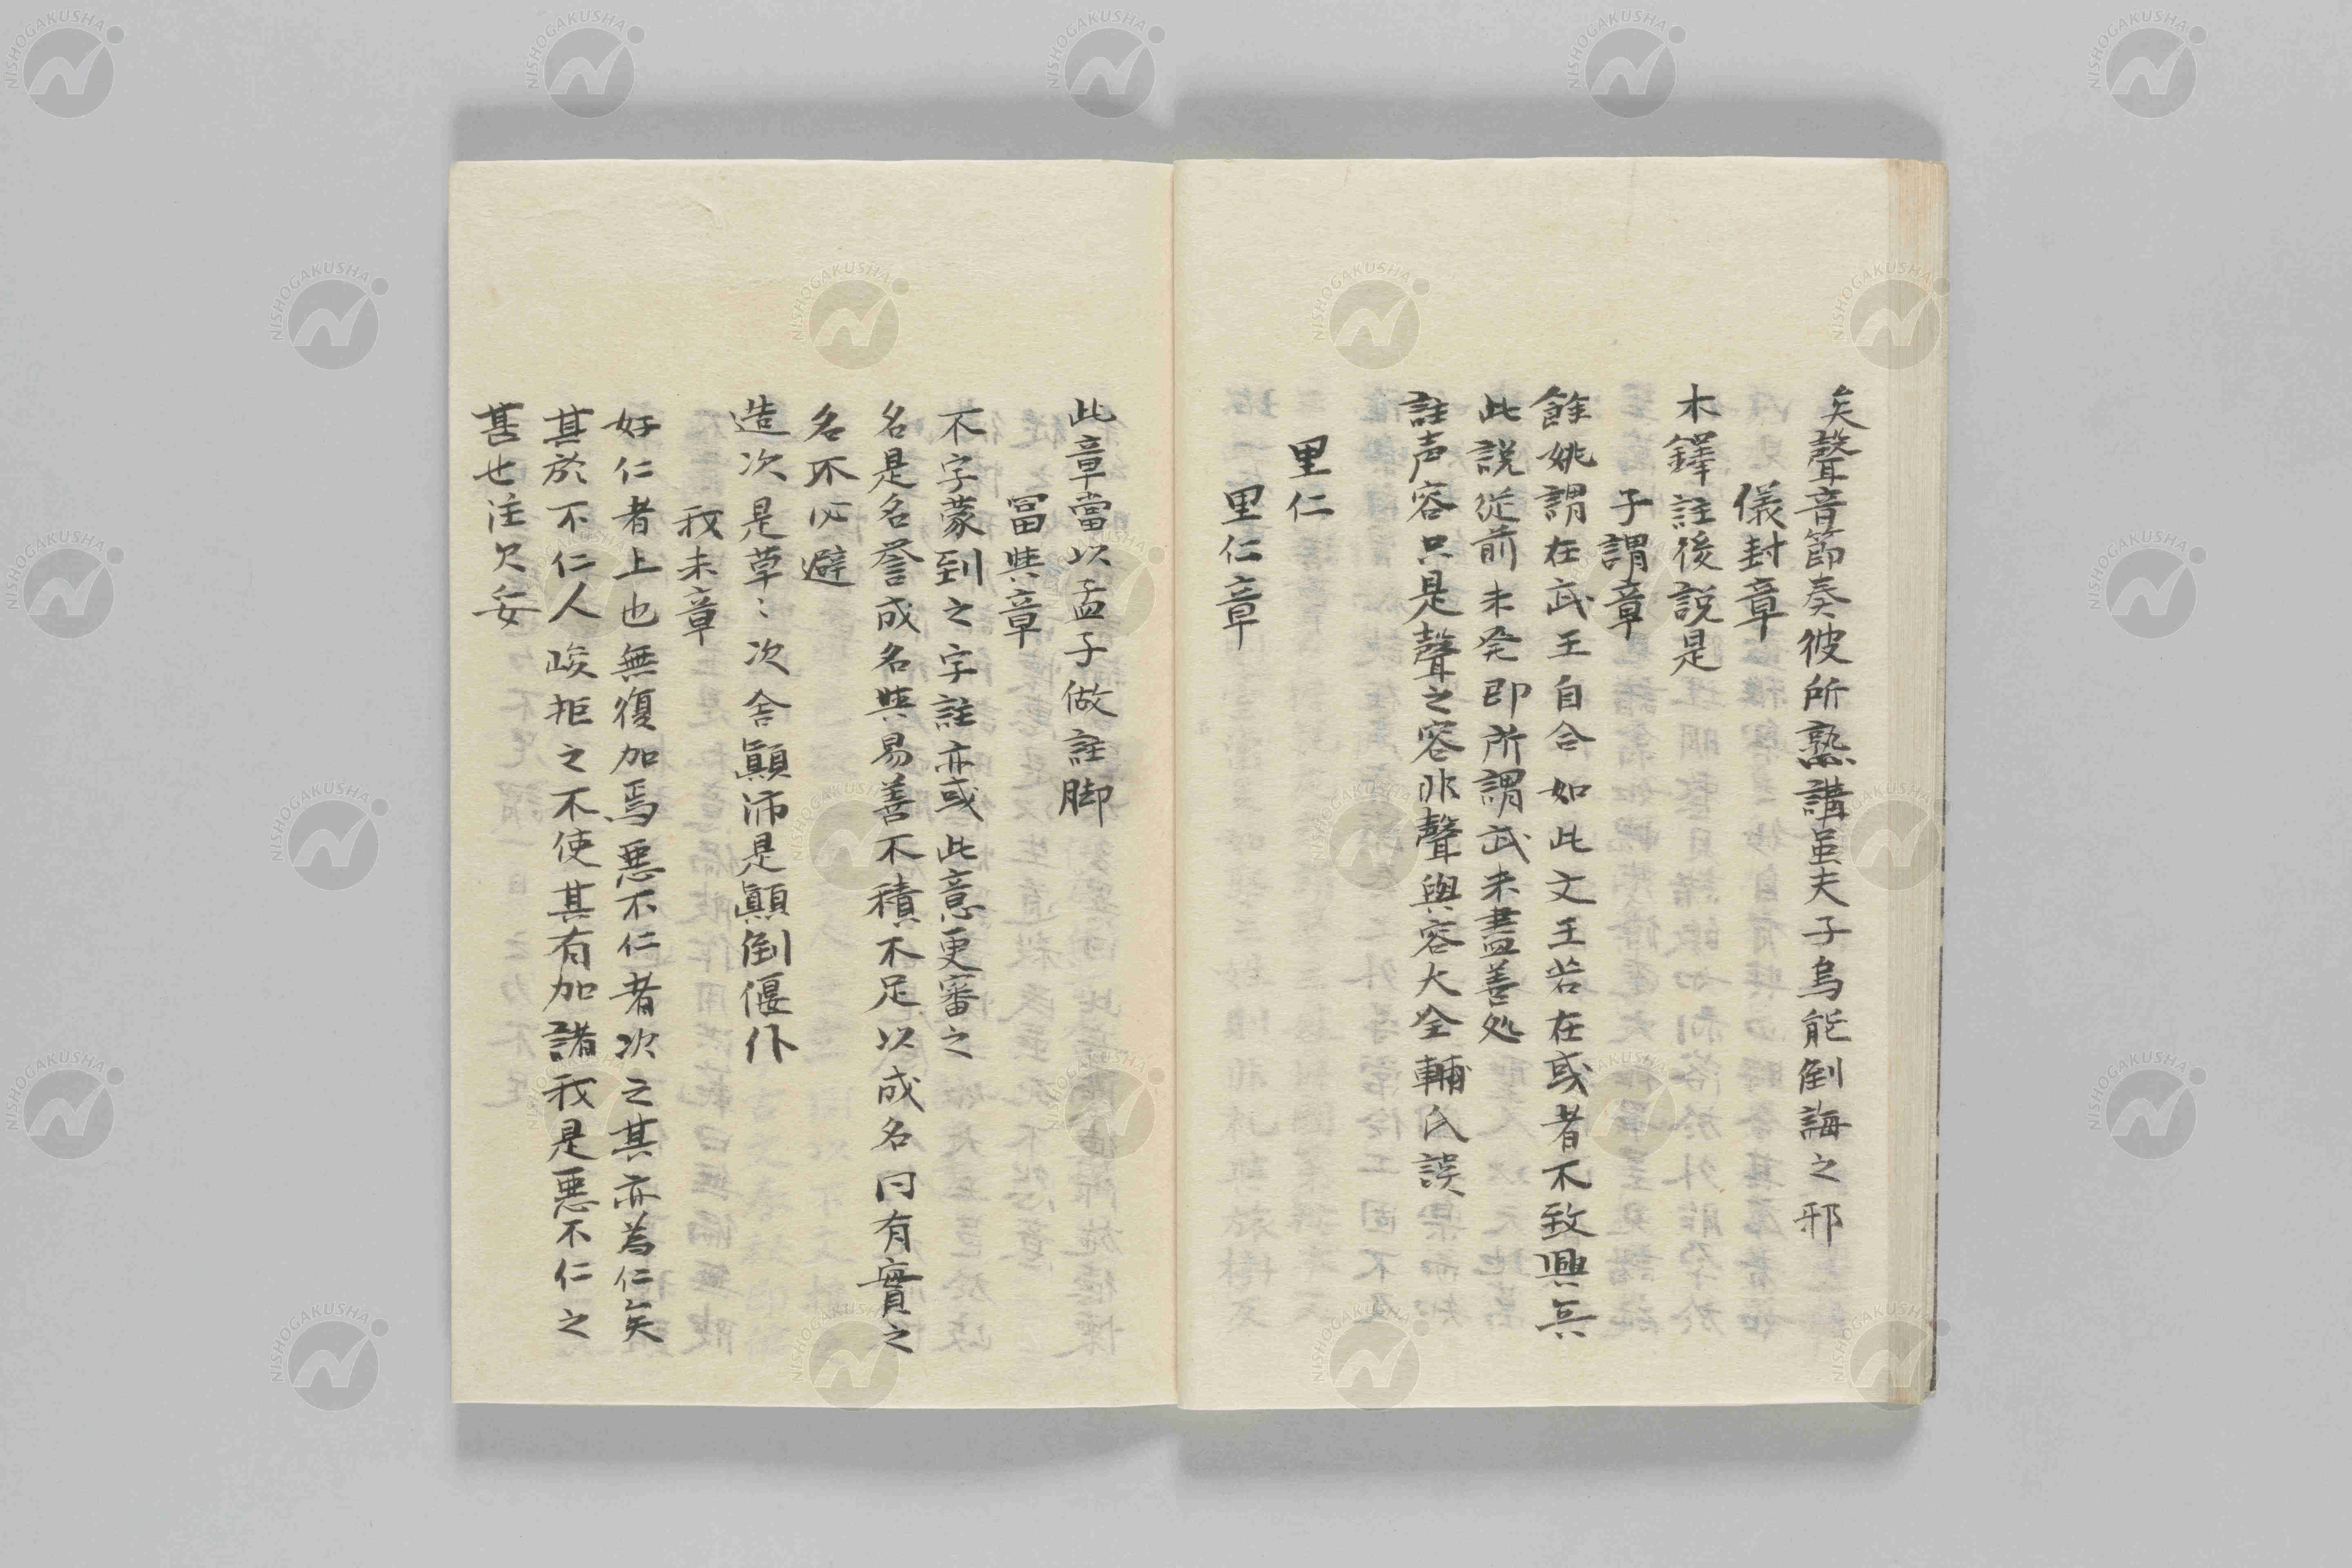 矣聲音節奏彼所熟講虽夫子烏能倒誨之邪
儀封章
木鐸註後説是
子謂章
餘姚謂在武王自合如此文王若在或者不致興兵
此説從前未発即所謂武未盡善処
註声容只是聲之容非聲與容大全輔氏誤
里仁
里仁章
此章當以孟子做註脚
冨與章
不字蒙到之字註亦或此意更審之
名是名誉成名與易善不積不足以成名同有實之
名不必避
造次是草〻次舍顚沛是顚倒偃仆
我未章
好仁者上也無復加焉悪不仁者次之其亦為仁矣
其於不仁人峻拒之不使其有加諸我是悪不仁之
甚也注欠妥